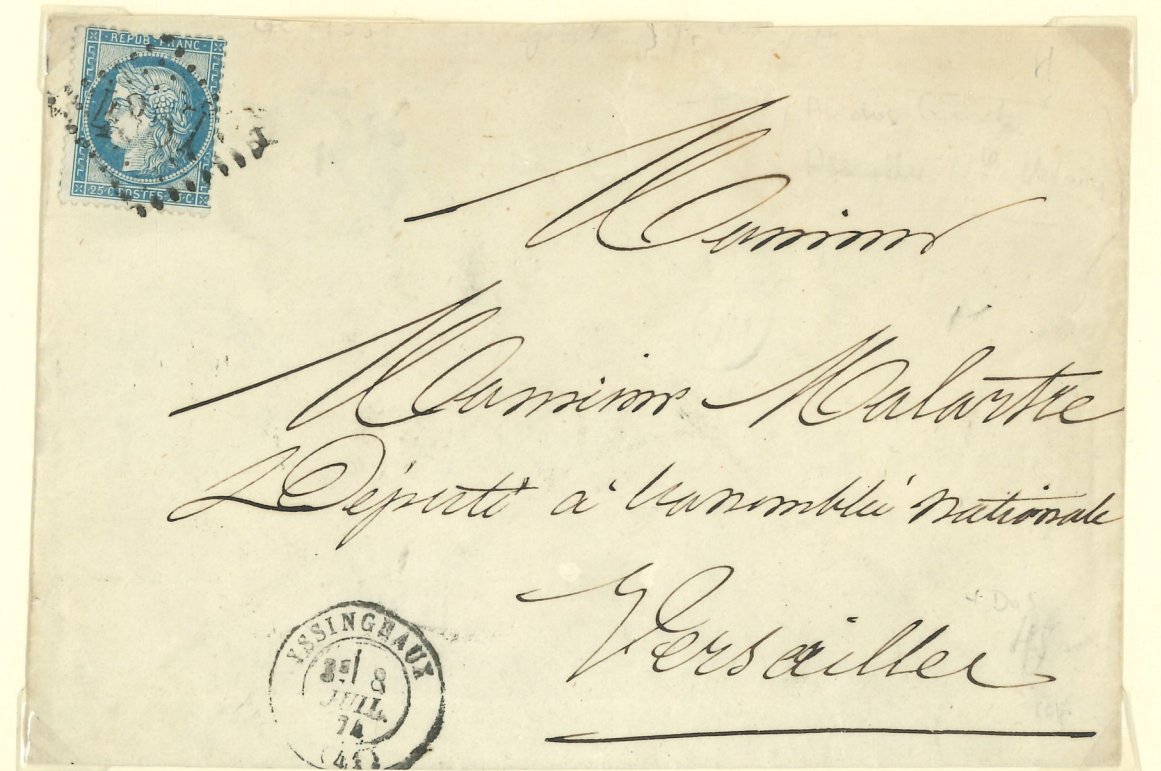 REPUB · FRANC ·
25 · C POSTES · C
Monsieur
Monsieur Malartre
Député à l'assemblée nationale
Versailles
YSSINGEAUX
8
JUIL.
74